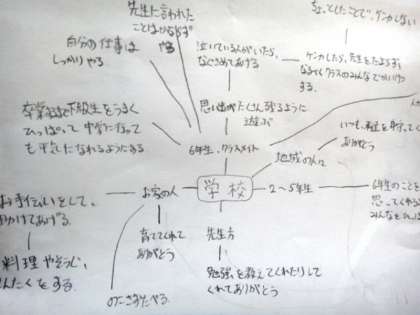 先生に言われた
ことはかならず
やる
自分の仕事は
しっかりやる
泣いている人がいたら、
なぐさめてあげる
ちょっとしたことで、ケンカしない
ケンカしたら、先生をたよらず
なるべくクラスのみんなでかいけつ
する。
思い出がたくさん残るように
遊ぶ
卒業
下級生をうまく
ひっぱって 中学になって
も平気になれるようにする
6年生、クラスメイト
地域の人
いつも
ありがとう
学校
2〜5年生
6年生のこと
思ってくれ
みんなを
お家の人
お手伝いをして、
かけてあげる。
料理やそうじ、
んたくをする。
育ててくれて
ありがとう
のこさずたべる
先生方
勉強を教えてくれたりして
くれてありがとう